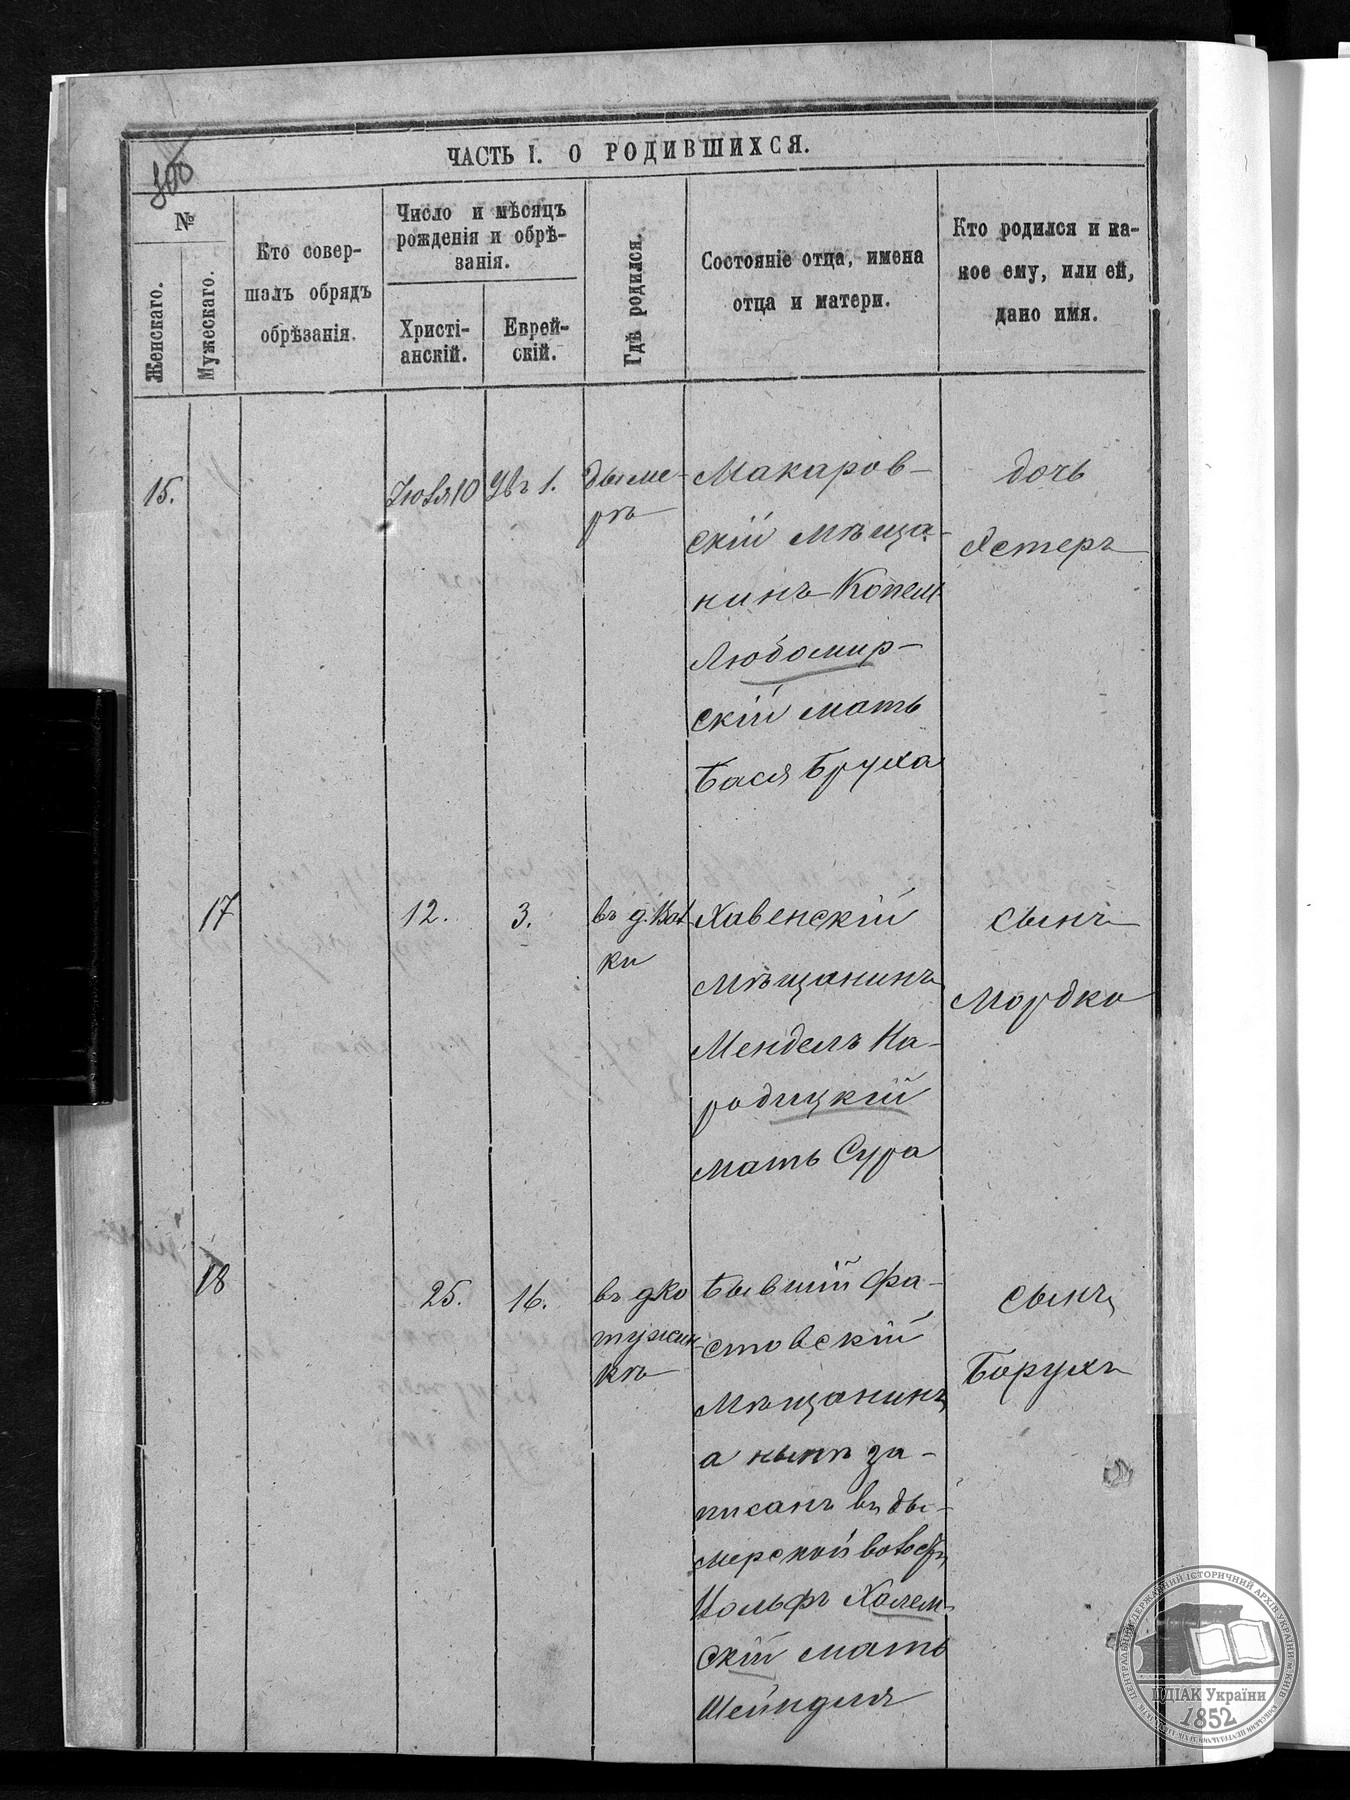 ЧАСТЬ I. О РОДИВШИХСЯ.
№
Женскаго.
Мужескаго.
Кто совер-
шалъ обрядъ
обрѣзанія.
Число и мѣсяцъ
рожденія и обрѣ-
занія.
Христі-
анскій.
Еврей-
скій.
Гдѣ родился.
Состояніе отца, имена
отца и матери.
Кто родился и ка-
кое ему, или ей,
дано имя.
15.
Іюля 10
1.
Дыме-
рѣ
Макаров-
скій мѣща-
нинъ Копель
Любомир-
скій мать
Бася Бруха
дочь
Эстеръ
17
12.
3.
въ д.
ки
Хавенскій
мѣщанинъ
Мендель На-
родицкій
мать Сура
сынъ
Мордко
18
25.
16.
въ д Ко
тужин-
кѣ
Бывшій Фа-
стовскій
мѣщанинъ
а нынѣ за-
писанъ въ Ды-
мерской волости
Вольфъ Холем-
скій мать
Шейндля
сынъ
Борухъ
ЦЕНТРАЛЬНИЙ ДЕРЖАВНИЙ ІСТОРИЧНИЙ АРХІВ УКРАЇНИ, М. КИЇВ
ЦДІАК України
1852